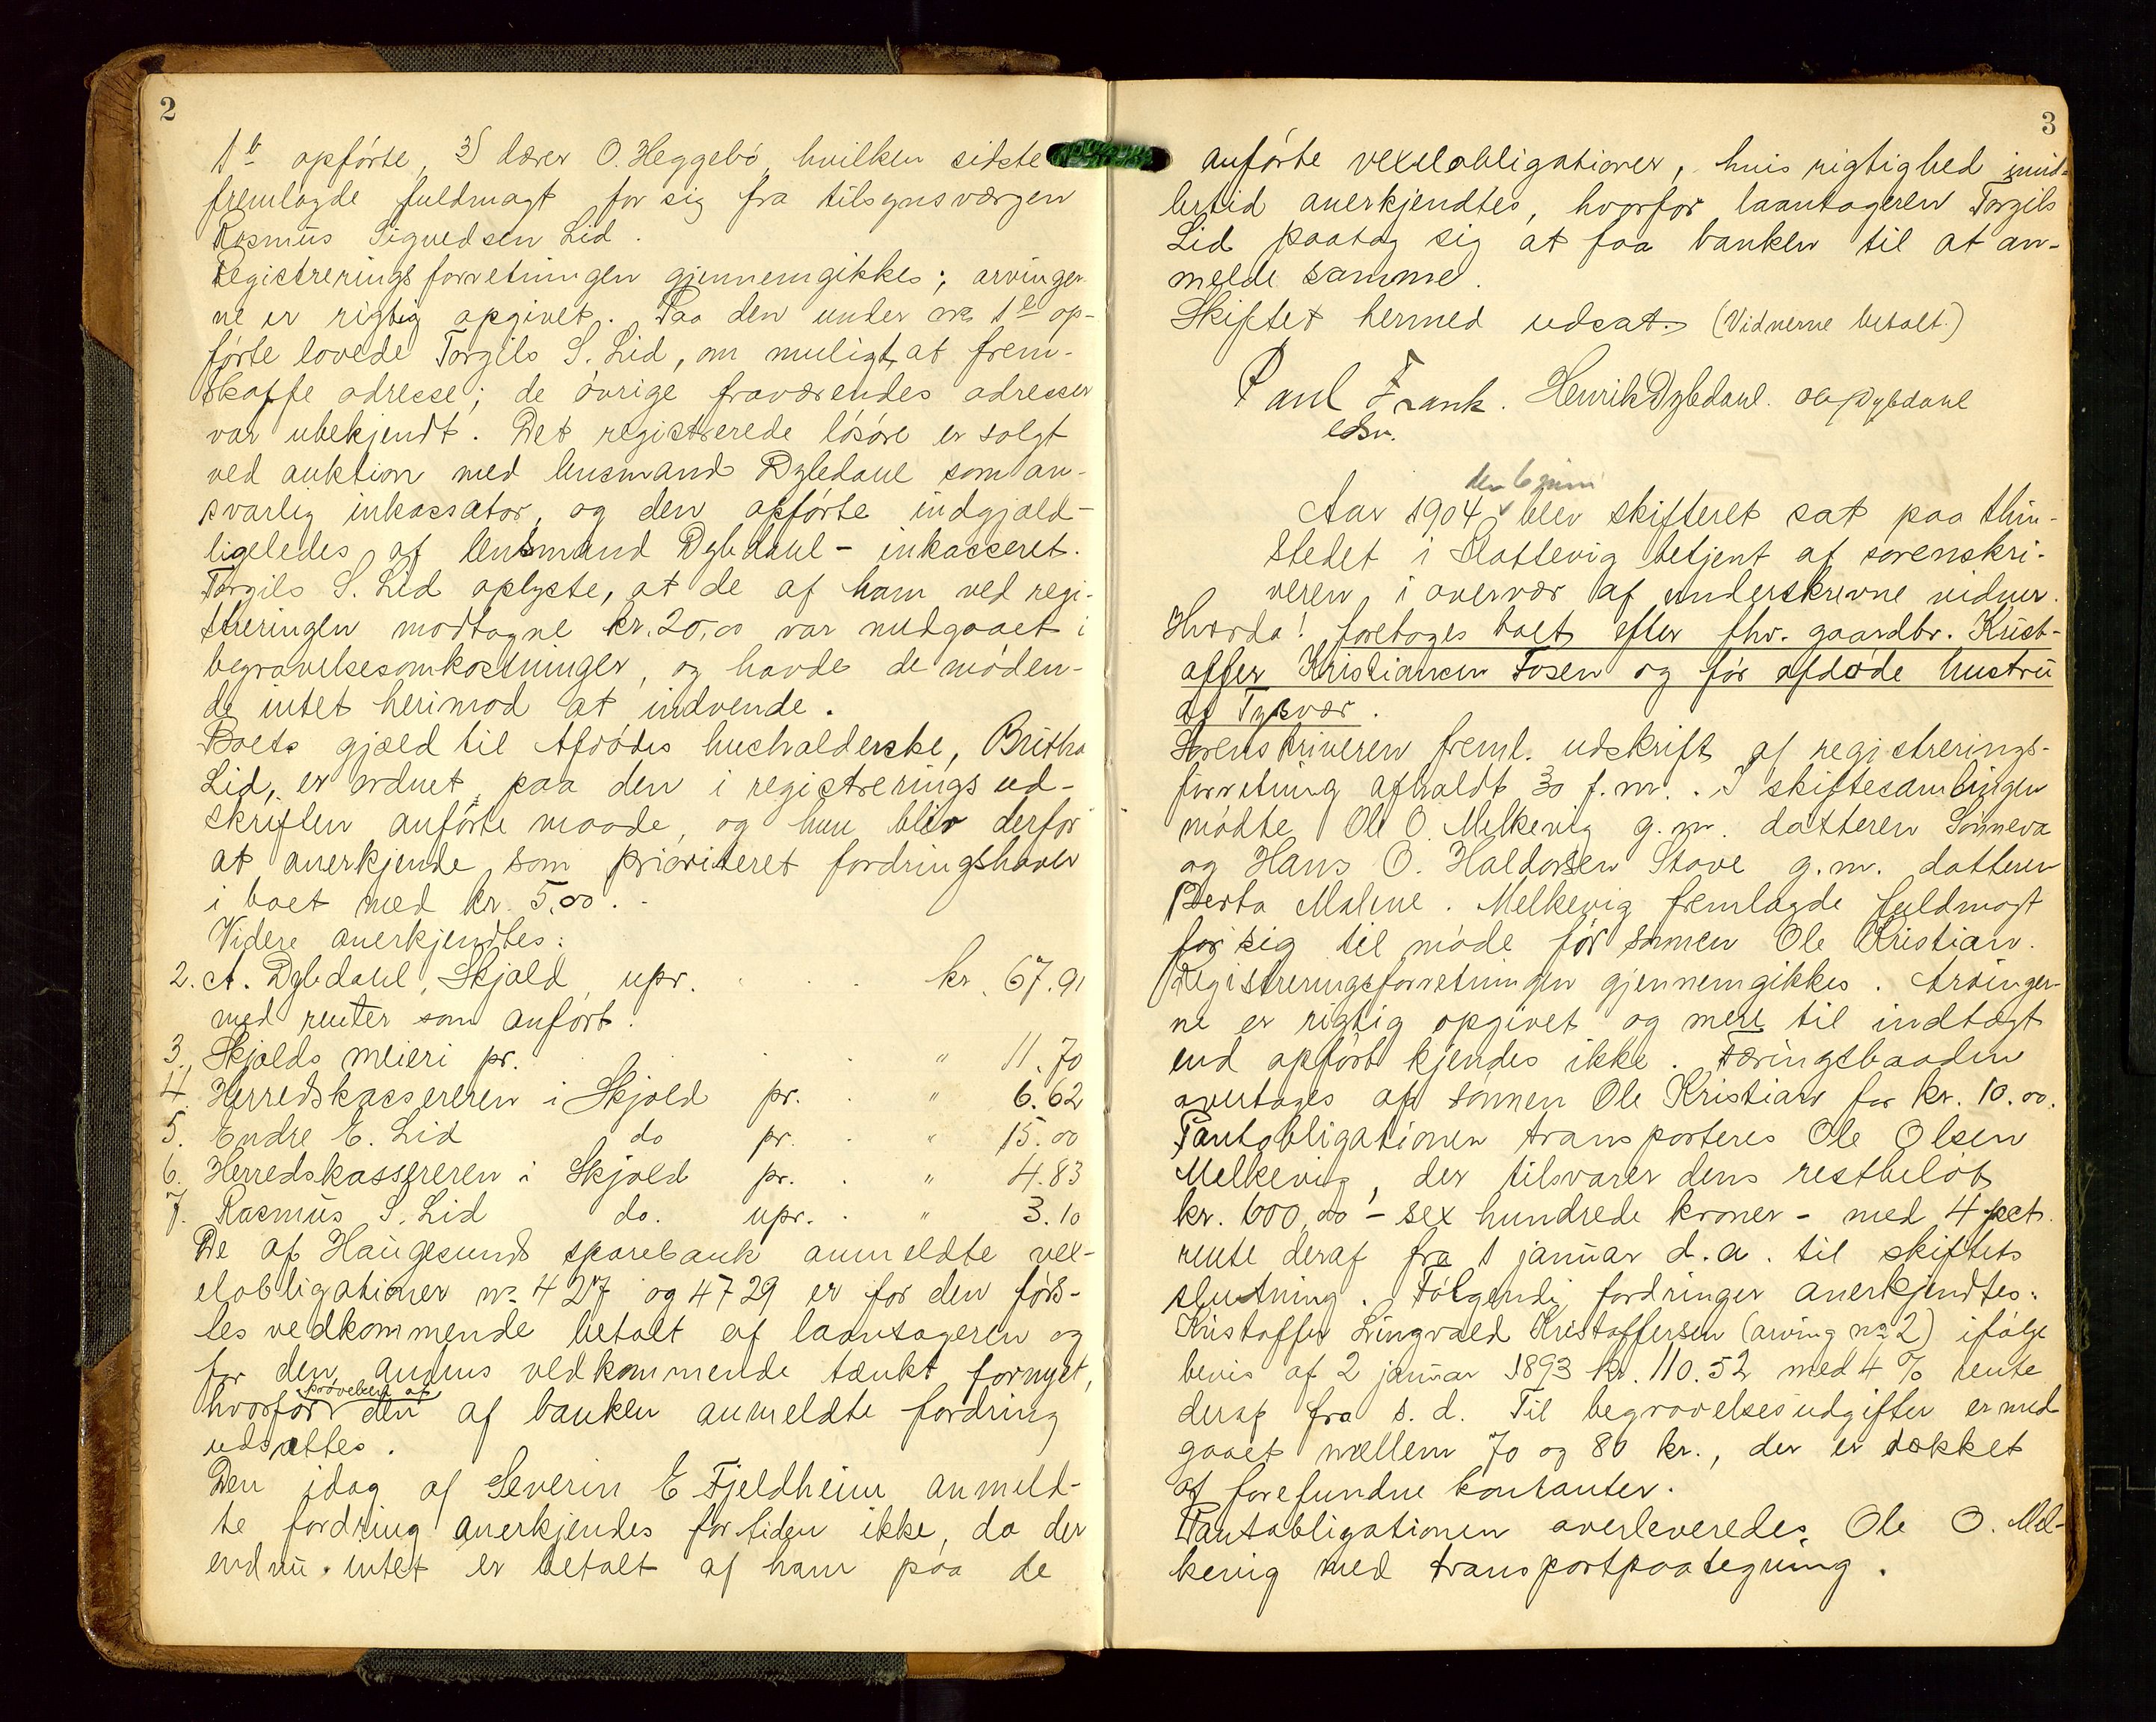 2
1 b opførte, 3) lærer O. Heggebø, hvilken sidste
fremlagde fuldmagt for sig fra tilsynsværgen
Rasmus Sigvedsen Lid.
Registreringsforretningen gjennemgikkes; arvinger
ne er rigtig opgivet. Paa den under no 1 op-
førte lovede Torgils S. Lid, om muligt, at frem-
skaffe adresse; de øvrige fraværendes adresser
var ubekjendt. Det registrerede løsøre er solgt
ved auktion med lensmand Dybdahl som an-
svarlig inkassator, og den opførte indgjæld-
ligeledes af lensmand Dybdahl - inkasseret.
Torgils S. Lid oplyste, at de af ham ved regi-
streringen modtagne kr. 20,00 var medgaaet i
begravelsesomkostninger, og havde de møden-
de intet herimod at indvende.
Boets gjæld til Afdødes husholderske, Britha
Lid, er ordnet paa den i registreringsud-
skriften anførte maade, og hun blir derfor
at anerkjende som prioriteret fordringshaver
i boet med kr. 5,00.
Videre anerkjendtes:
2. A. Dybdahl, Skjold, upr. kr. 67.91
med renter som anført.
3. Skjolds meieri pr. " 11.70
4. Herredskassereren i Skjold pr. " 6.62
5. Endre E. Lid do pr. " 15.00
6. Herredskassereren i Skjold pr. " 4.83
7. Rasmus S. Lid do. upr. " 3.10
De af Haugesunds sparebank anmeldte vex-
elobligationer no 427 og 4729 er for den førs-
tes vedkommende betalt af laantageren og
for den andens vedkommende tænkt fornyet,
prøvelsen af
hvorfor den af banken anmeldte fordring
udsættes.
Den idag af Severin E Fjeldheim anmeld-
te fordring anerkjendes for tiden ikke, da der
endnu intet er betalt af ham paa de
3
anførte vexelobligationer, hvis rigtighed imid-
lertid anerkjendtes, hvorfor laantageren Torgils
Lid paatog sig at faa banken til at an-
melde samme.
Skiftet hermed udsat. (Vidnerne betalt.)
Paul Frank. Henrik Dybdahl. Ola Dybdahl
edsv.
den 6 juni
Aar 1904 blev skifteret sat paa thin-
stedet i Slattevig betjent af sorenskri-
veren i overvær af underskrevne vidner.
Hvorda! foretages boet efter fhv. gaardbr. Krist-
offer Kristiansen Fosen og før afdøde hustru
af Tysvær.
Sorenskriveren freml. udskrift af registrerings-
forretning afholdt 30 f.m. I skiftesamlingen
mødte Ole O. Melkevig g.m. datteren Sønneva
og Hans O. Haldorsen Stove g.m. datteren
Berta Malene. Melkevig fremlagde fuldmagt
for sig til møde før sønnen Ole Kristian.
Registreringsforretningen gjennemgikkes. Arvinger-
ne er rigtig opgivet og mere til indtægt
end opført kjendes ikke. Færingsbaaden
overtages af sønnen Ole Kristian for kr. 10.00.
Pantobligationen transporteres Ole Olsen
Melkevig, der tilsvarer dens restbeløb
kr. 600,00 - sex hundrede kroner - med 4 pct.
rente deraf fra 1 januar d.a. til skiftets
slutning. Følgende fordringer anerkjendtes:
Kristoffer Lingvald Kristoffersen (arving no 2) ifølge
bevis af 2 januar 1893 kr. 110.52 med 4 % rente
deraf fra s. d. Til begravelsesudgifter er med
gaaet mellem 70 og 80 kr., der er dækket
af forefundne kontanter.
Pantobligationen overleveredes Ole O. Mel-
kevig med transportpaategning.